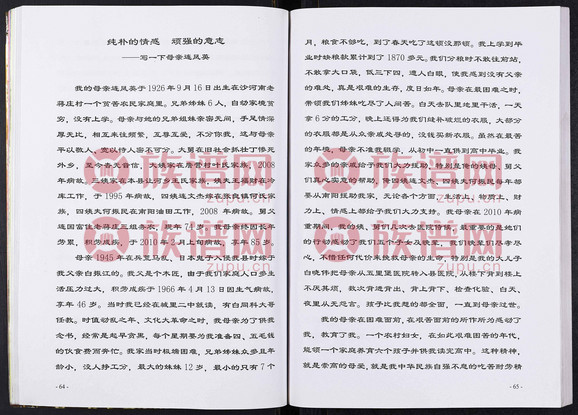 纯朴的情感　顽强的意志
——写一下母亲逯风英
我的母亲逯风英于1926年9月16日出生在沙河南老
蒋庄村一个贫苦农民家庭里。兄弟姊妹6人，自幼家境贫
穷，没有上学。母亲与她的兄弟姐妹亲密无间，手足情深
厚无比，相互来往频繁，互尊互爱，不分你我，这与母亲
平以教人，宽以待人密不可分。大舅在旧社会抓壮丁惨死
外乡，至今杳无音信，
2008
年病故，
库工作，于1995年病故，四姨逯文
四姨夫何振民在南阳油田工作，2008年病故。舅父
逯国富住老蒋庄三组务农，
74岁。我母亲终因长年
劳累，积劳成疾，于2010年2月上旬病故，享年85岁。
母亲1945年在兵荒马乱、日本鬼子入侵我县时嫁于
我父亲白振江的。我父是个木匠，由于我们家庭人口多生
活压力过大，积劳成疾于1966年4月13日因生气病故，
享年46岁。当时我已经在城里二中就读，有白周科大哥
任教。时值动乱之年、文化大革命之时，我母亲为了供我
念书，经常是起早贪黑，每个星期要为我准备四、五毛钱
的伙食费而奔忙。我家当时极端困难，兄弟姊妹众多且年
龄小，没人挣工分，最大的妹妹12岁，最小的只有7个
- 64 -
月，粮食不够吃，到了春天吃了这顿没那顿。我上学到毕
业时缺粮款累计到了1870多元。我们分粮时不敢往前站，
不敢拿大口袋，低三下四，遭人白眼，使我感到没有父亲
的难处，真是艰难的生存，度日如年。母亲在最困难之时，
带领我们姊妹吃尽了人间苦。白天去队里地里干活，一天
拿6分的工分，晚上还得为我们缝补破烂的衣服，大部分
的衣服都是从众亲戚处寻的，没钱买新衣服。虽然在最苦
的年境，母亲不准我辍学，从初中一直供到高中毕业。我
家众多的亲戚给予我们大力援助，特别是俺的姨母，舅父
们真心实意的帮助，
要从南阳援助我家，无论各个方面，生活上、物资上、财
力上、情感上都给予我们大力支持。我母亲在2010年病
重期间，我的姨、舅们几次去医院守候，最重要的是她们
的行动感动了我们五个子女及晚辈，我们晚辈们个个孝从
心，不惜任何代价来挽救母亲的生命。特别是我的大儿子
白晓伟把母亲从五里堡医院转入县医院，从楼下背到楼上
不厌其烦，数次进背出，背上背下，检查化验，白天、
夜里从无怨言。孩子比我想的都全面，一直到母亲过世。
我的母亲在困难面前，在艰苦面前的所作所为感动了
我，教育了我。一个农村妇女，在如此艰难困苦的年代，
能领一个家庭养育六个孩子并供我读完高中。这种精神，
就是崇高的母爱，就是我中华民族自强不息的吃苦耐劳精
- 65 -
族谱网
zupu.cn
族谱网
zupu.cn
族谱网
zupu.cn
族谱网
zupu.cn